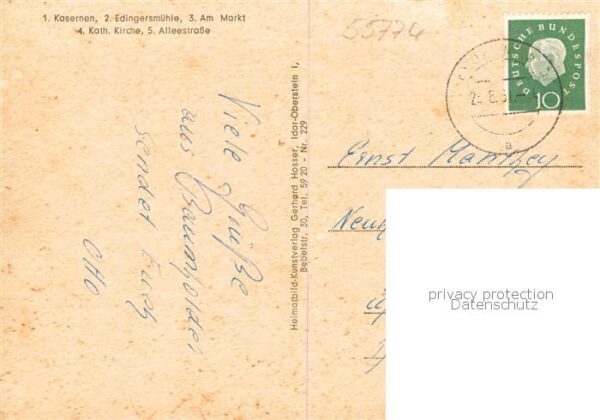 1. Kasernen, 2. Edingersmühle, 3. Am Markt
4. Kath. Kirche, 5. Alleestraße
Viele Grüße
aus Baumholder
sendet Euch
Otto
Heimatbild-Kunstverlag Gerhard Hosser, Idar-Oberstein 1,
Bebelstr. 30, Tel. 59 20 Nr. 229
55774
DEUTSCHE BUNDESPOST
10
a
Ernst Manthey
privacy protection
Datenschutz